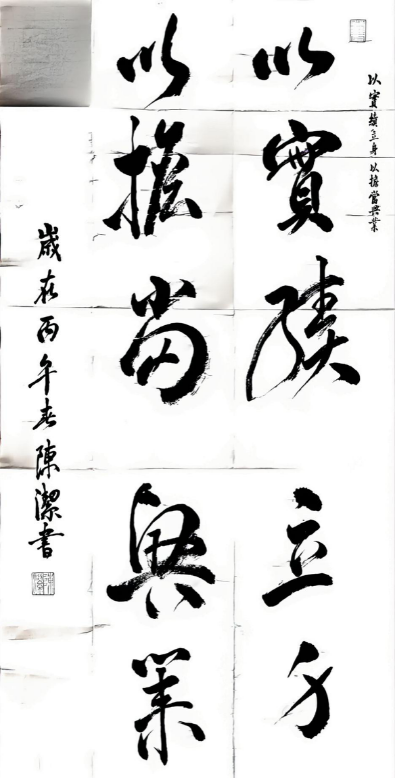 以實績立身以擔當興業
以實績立身
以擔當興業
歲在丙午春陳潔書